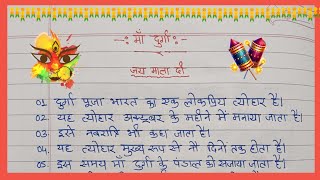 -: माँ दुर्गा :-
जय माता दी
01. दुर्गा पूजा भारत का एक लोकप्रिय त्योहार है।
02. यह त्योहार अक्टूबर के महीने में मनाया जाता है।
03. इसे नवरात्रि भी कहा जाता है।
04. यह त्योहार मुख्य रूप से नौ दिनों तक होता है।
05. इस समय माँ दुर्गा के पंडाल को सजाया जाता है।